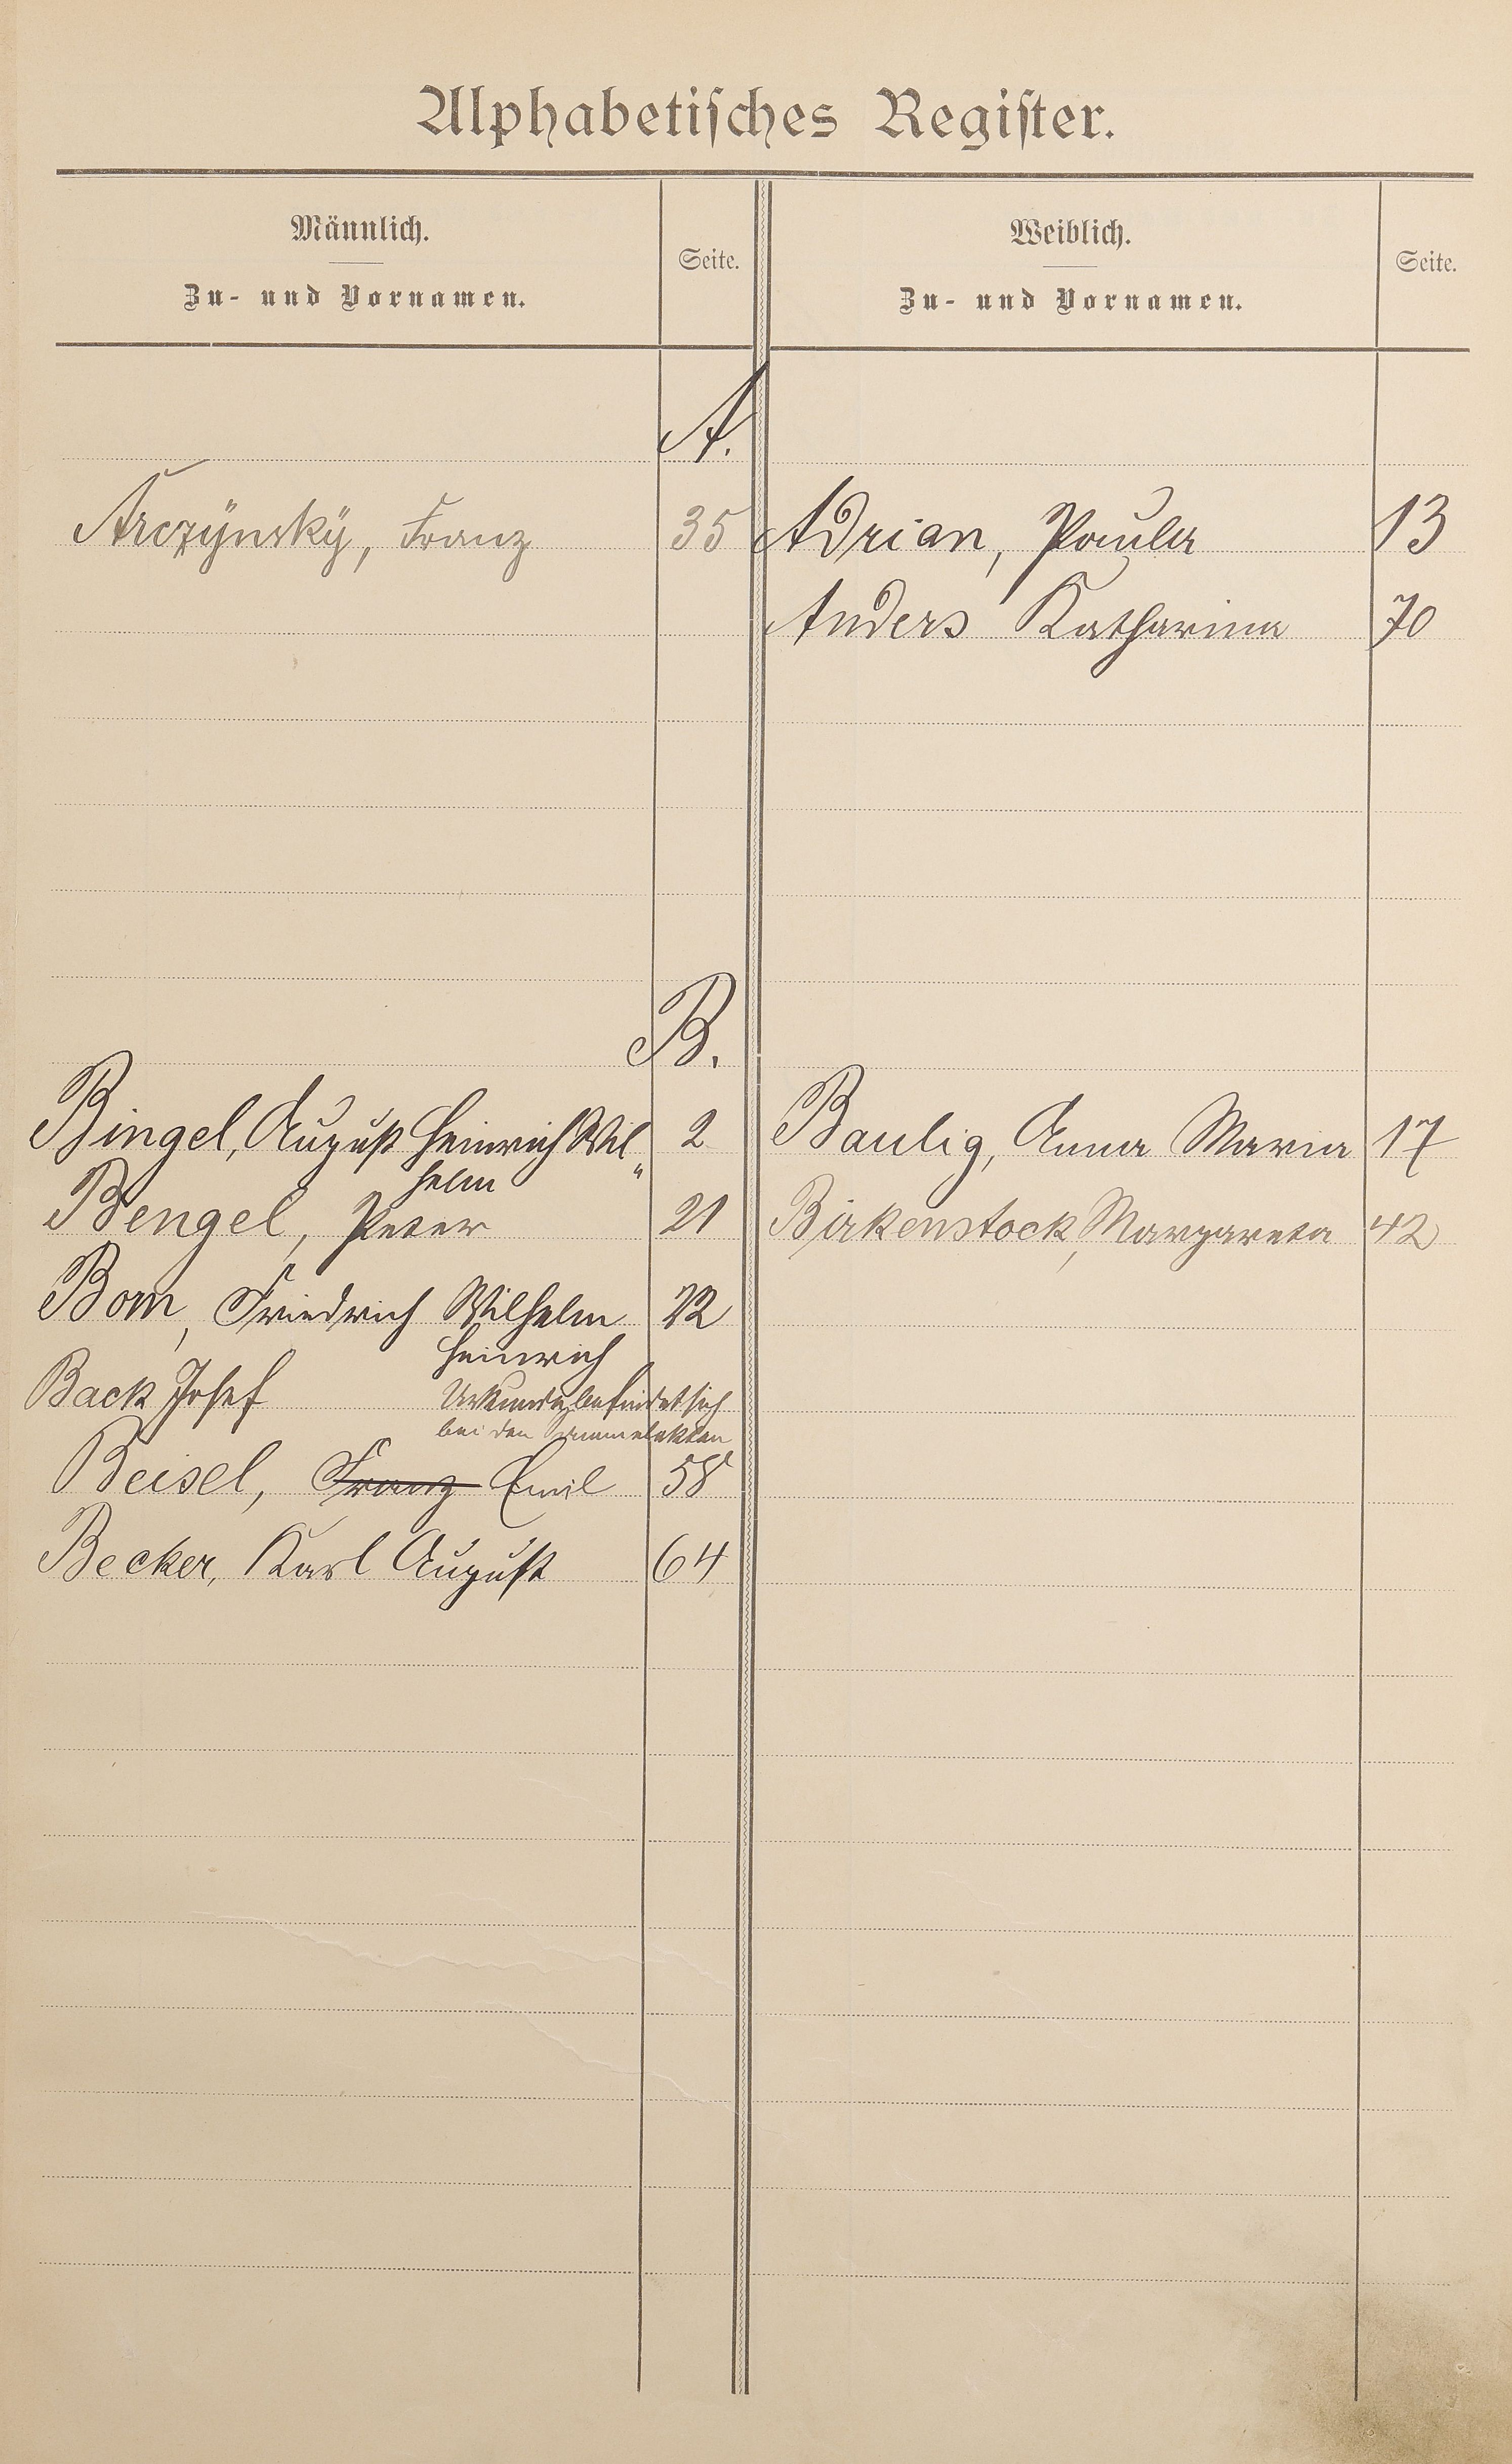 Alphabetisches Register.
Männlich.
Zu- und Vornamen.
Seite.
Weiblich.
Zu- und Vornamen.
Seite.
A.
Arczÿnskÿ, Franz 35
Adrian, Paula 13
Anders Katharina 70
B.
Bingel, August Heinrich Wil„ 2
helm
Baulig, Anna Maria 17
Bengel, Peter 21
Birkenstock, Margareta 42
Born, Friedrich Wilhelm 22
Heinrich
Back Josef Urkunde befindet sich
bei den Sammelakten
Beisel, Franz Emil 58
Becker, Karl August 64